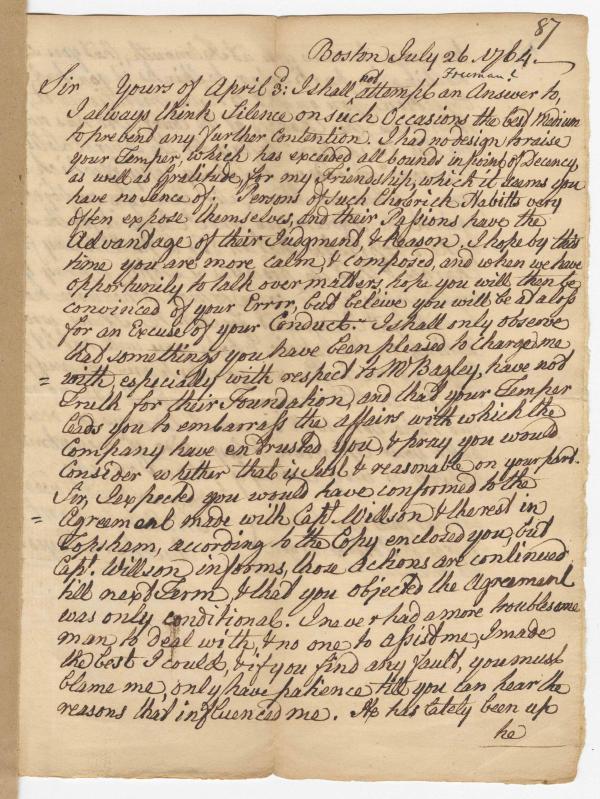 87
Boston July 26. 1764.
Freeman
Sir Yours of April 3d: I shall not attempt an Answer to,
I always think Silence on such Occasions the best medium
to prevend any further Contention. I had no design to raise
your Temper, which has exceeded all bounds in point of Decency,
as well as Gratitude, for my Friendship, which it seems you
have no sence of. Persons of such Cholerick Habitts very
often expose themselves, and their Passions have the
Advantage of their Judgment, & Reason, I hope by this
time you are more calm, & composed, and when we have
opportunity to talk over matters, hope you will then be
convinced of your Error, but beleive you will be at a loss
for an Excuse of your Conduct. I shall only observe
that some things you have been pleased to charge me
= with, especially with respect to Mr Bagley, have not
Truth for their Foundation, and that your Temper
leads you to embarrass the affairs with which the
Company have entrusted you, & pray you would
Consider whether that is Just & reasonable on your part.
Sir, I expected you would have conformed to the
= Agreement made with Capt. Willson & the rest in
Topsham, according to the Copy enclosed you, but
Capt. Willson informs, those Actions are continued
till next Term, & that you objected the Agreement
was only conditional. I never had a more troublesome
man to deal with, & no one to assist me, I made
the best I could, & if you find any fault, you must
blame me, only have patience till you can hear the
reasons that influenced me. He has lately been up
he